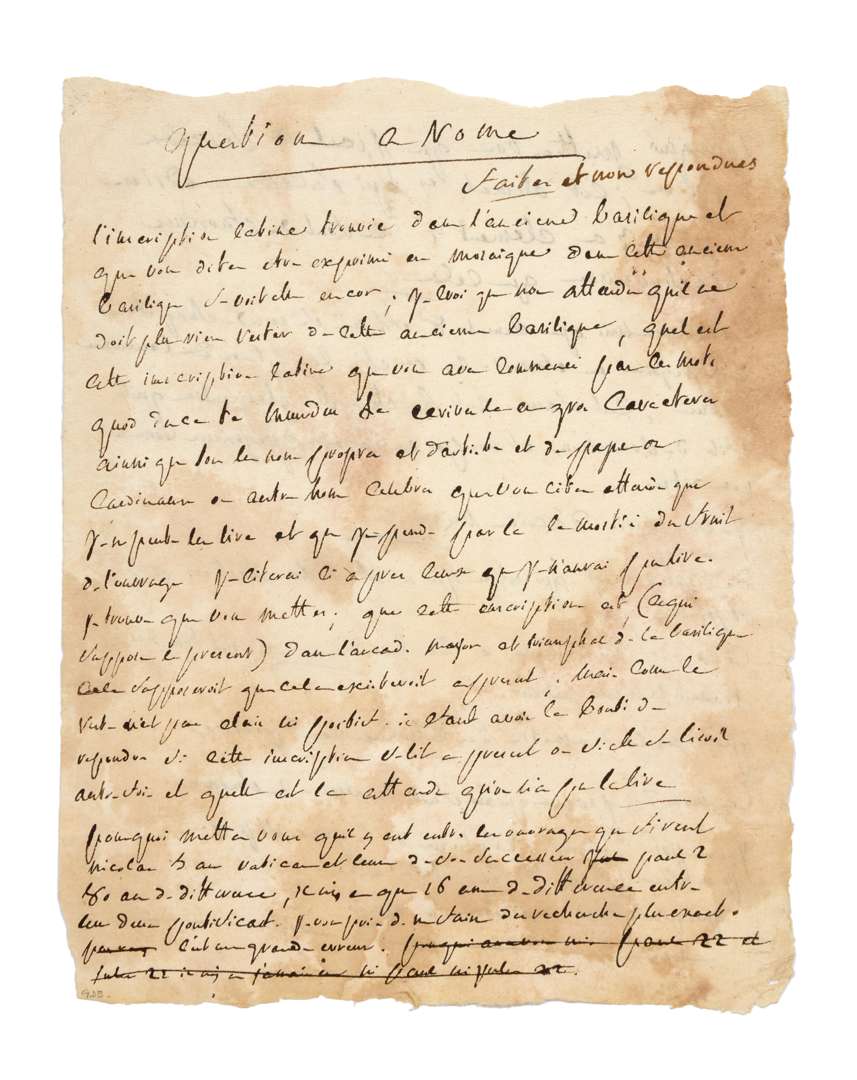 question a Rome
faites et non respondues
l'inscription latine trouvée dans l'anciene basilique et
que vous dites etre exprimé en mosaique dans cette anciene
basilique s-voit elle encor, que non attendu qu'il ne
doit plus rien rester de cette anciene basilique, quel est
cette inscription latine que vous avez commencé par ces mots
quod duce te mundus
ainsi que tous les noms propres et d'artiste et de papes ou
Cardinaux ou autre nom celebre que vous citez attendu que
j-n peut les lire et que j-perds par la la moitié du fruit
d-l'ouvrage j-citerai ci apres ceux que j-n'aurai pu lire.
j-trouve que vous mettes, que cette inscription est (ce qui
suppose le present) dans l'arcad. major et triumphal d- la basilique
Cela supposeroit que cela existeroit apresent, mais comme le
n'est pas clair ni il faut avoir la bonté d-
respondre si cette inscription s-lit apresent ou si elle s-lisoit
autrefois et quelle est la attendu qu'on n'a pu la lire
pourquoi mettes vous qu'il y eut entre les ouvrages que firent
nicolas 5 au vatican et ceux d-son successeur paul 2
80 ans d-difference, que 16 ans d-difference entre
les deux pontificat. j-vous prie d-m faire des recherches plus exact.
c'est une grande erreur. paul 22 et
ni paul ni jules 22.
G.DB.